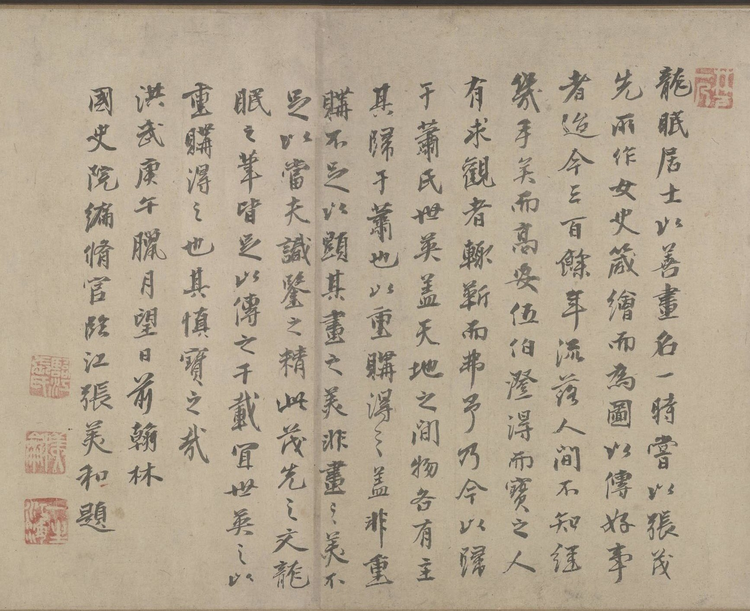 龍眠居士以善畫名一時嘗以張茂
先所作女史箴繪而為圖以傳好事
者迨今三百餘年流落人間不知經
幾手矣而高安伍伯澄得而寶之人
有求觀者輒靳而弗予乃今以歸
于蕭氏世英盖天地之間物各有主
其歸于蕭也以重購得之盖非重
購不足以顯其畫之美非畫之美不
足以當夫識鑒之精此茂先之文龍
眠之筆皆足以傳之千載宜世英之以
重購得之也其慎寶之哉
洪武庚午臘月望日前翰林
國史院編脩官臨江張美和題